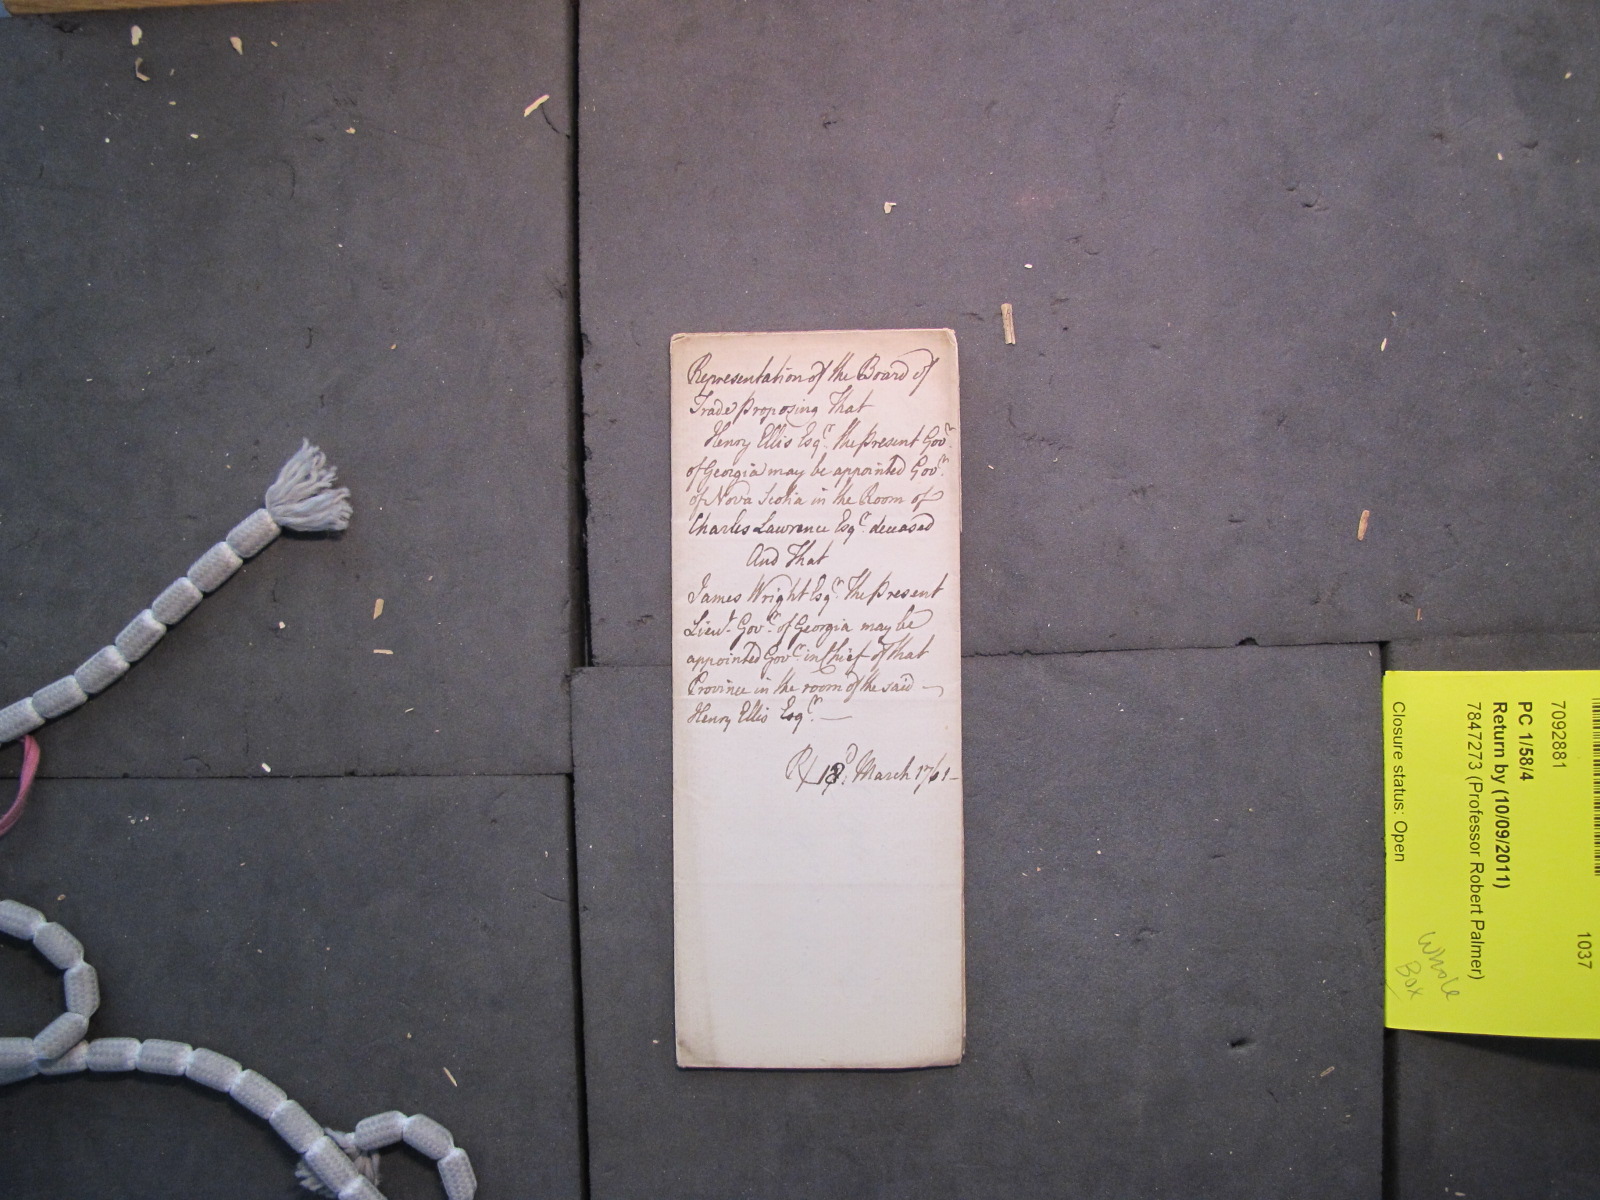 Representation of the Board of
Trade proposing That
Henry Ellis Esqr. the present Govr.
of Georgia may be appointed Govr.
of Nova Scotia in the Room of
Charles Lawrence Esqr. deceased
And That
James Wright Esqr. the present
Lieut. Govr. of Georgia may be
appointed Govr. in Chief of that
Province in the room of the said —
Henry Ellis Esqr. —
March 1761 —
1037
7092881
PC 1/58/4
Return by (10/09/2011)
7847273 (Professor Robert Palmer)
Closure status: Open
Whole
Box